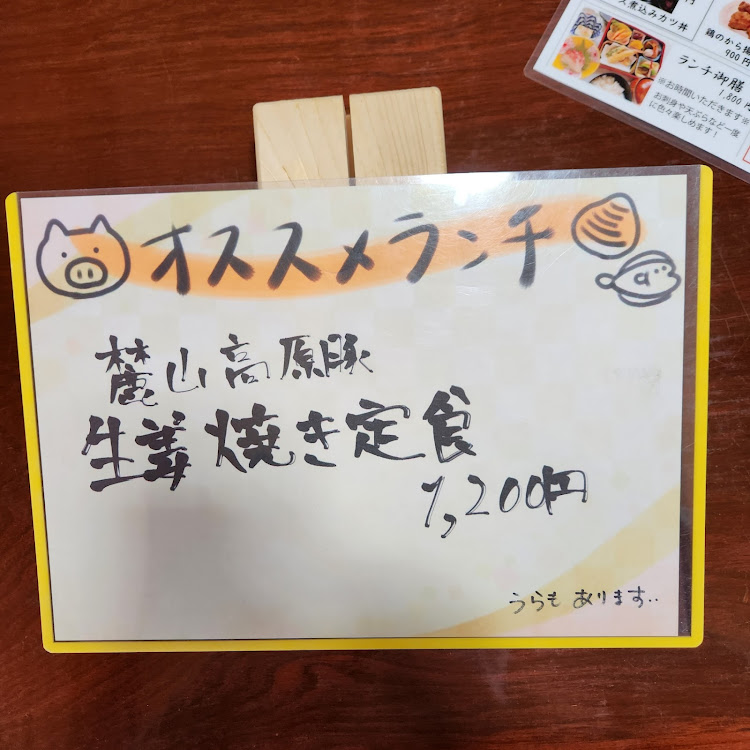 オススメランチ
麓山高原豚
生姜焼き定食
1,200円
うらも あります..
煮込みカツ丼
鶏のから揚
900円
ランチ御膳
1,800円
※お時間いただきます※
お刺身や天ぷらなど一度
に色々楽しめます！